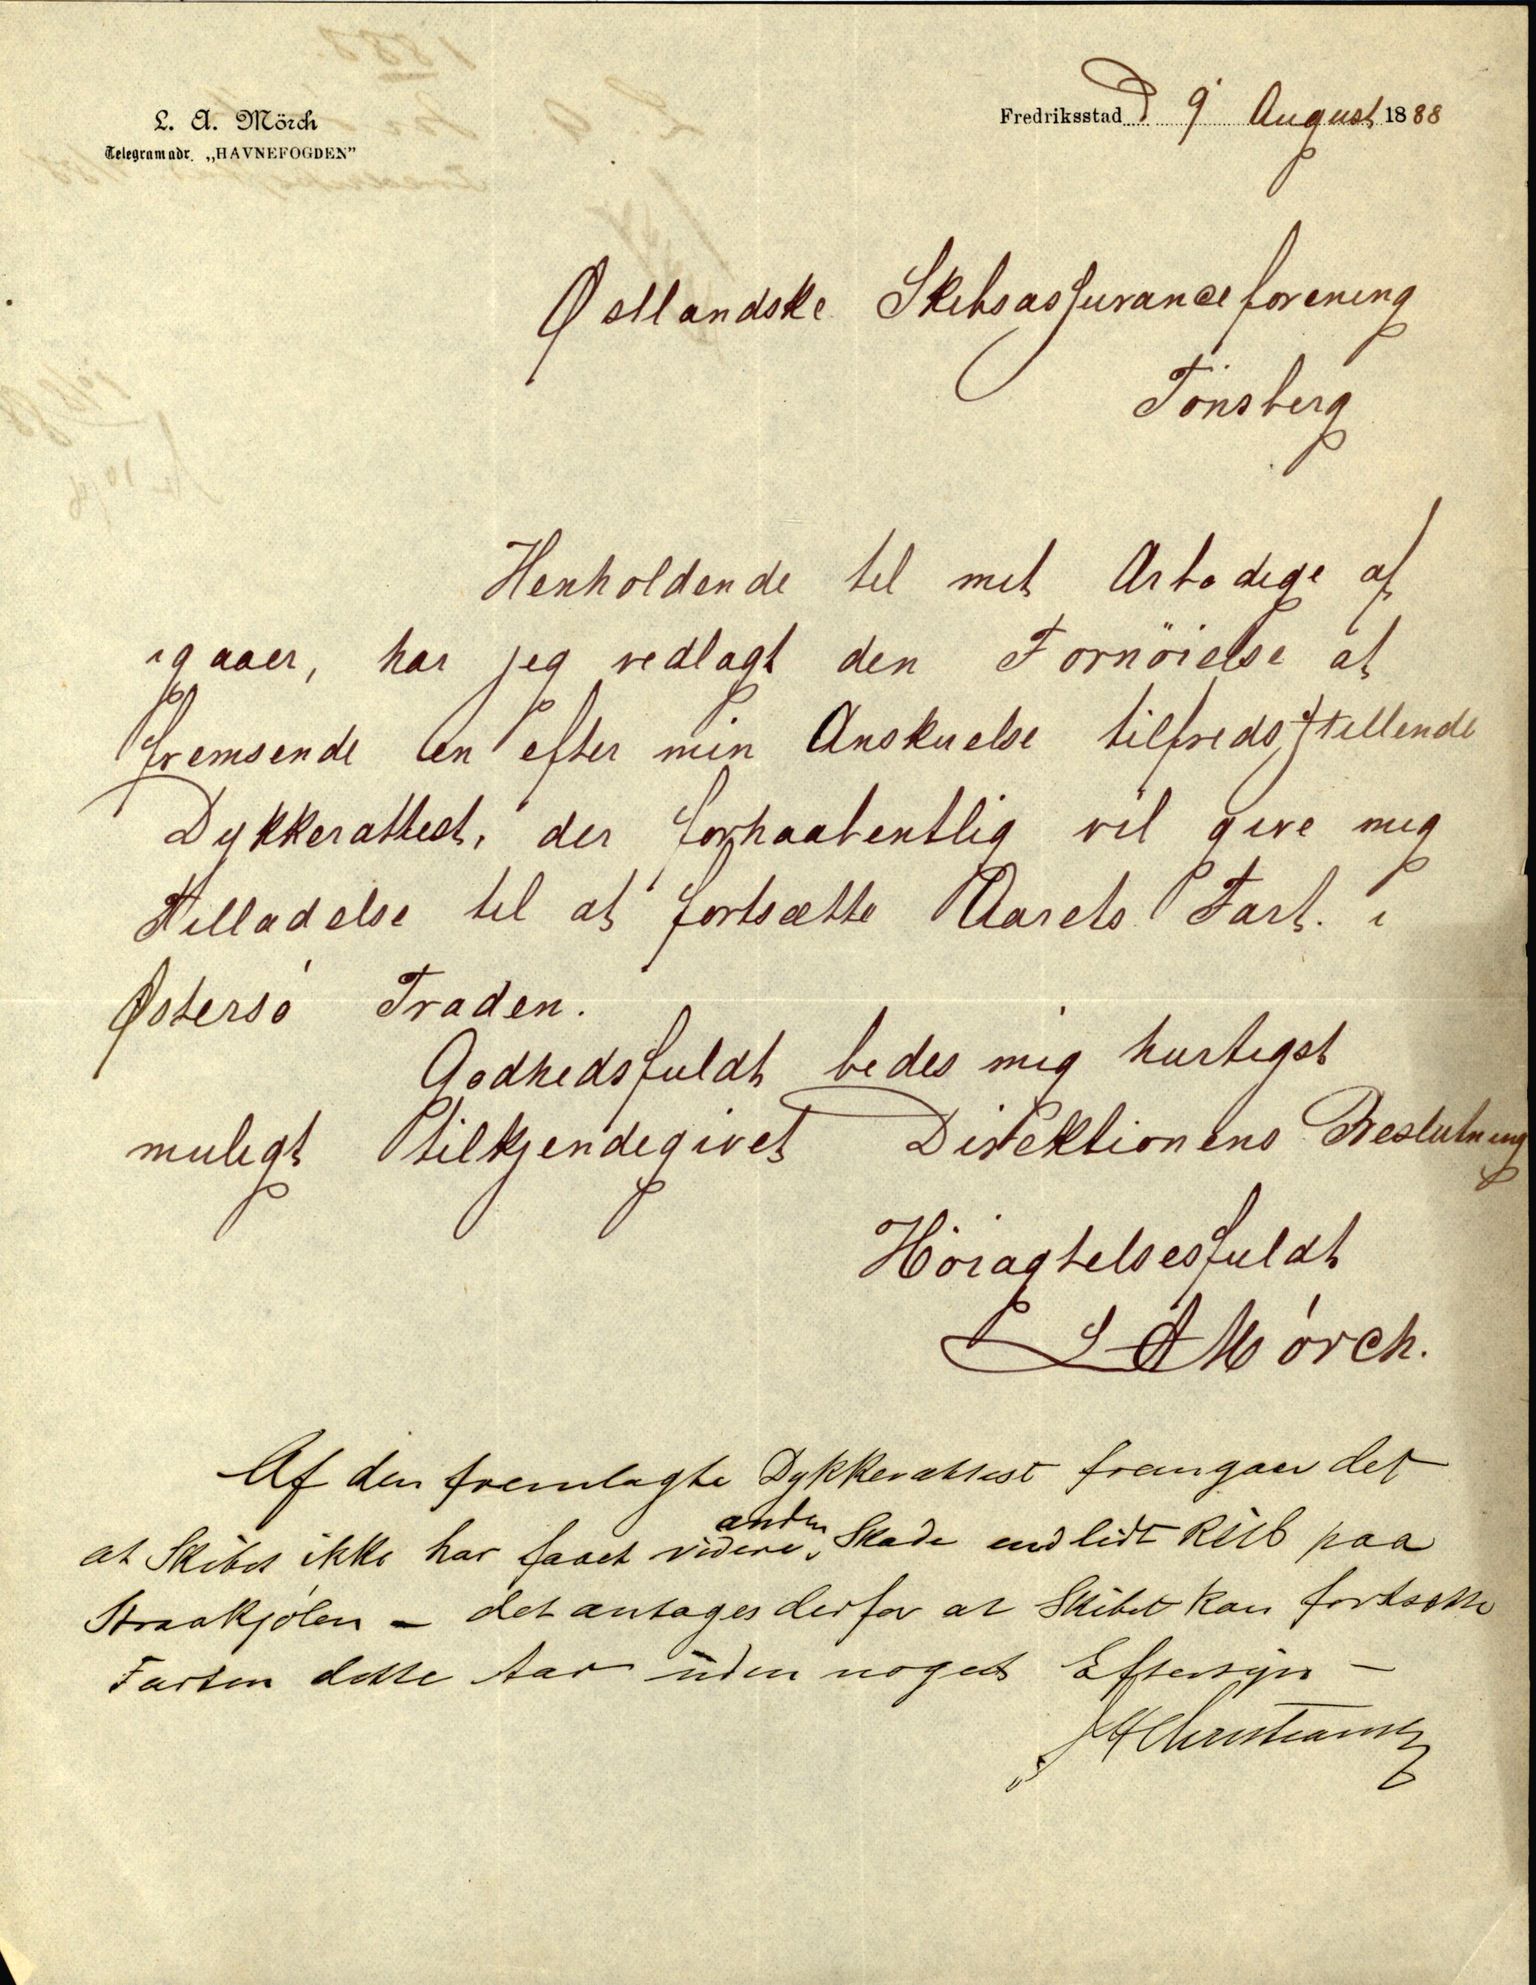 L. A. Mörch
Telegramadr. „HAVNEFOGDEN”
Fredriksstad D 9' August 1888
Østlandske Skibsassuranceforening
Tönsberg
Henholdende til mit Ærbødige af
igaaer, har jeg vedlagt den Fornöielse at
fremsende en efter min Anskuelse tilfredsstillende
Dykkerattest, der forhaabentlig vil give mig
Tilladelse til at fortsætte Aarets Fart i
Østersö Traden.
Godhedsfuldt bedes mig hurtigst
muligt tilkjendegivet Direktionens Beslutning
Höiagtelsesfuldt
L A Mörch.
Af den fremlagte Dykkerattest fremgaar det
at Skibet ikke har faaet videre anden Skade end lidt paa
Straakjølen – det antages derfor at Skibet kan fortsætte
Farten dette Aar uden noget Eftersyn –
Christiansen